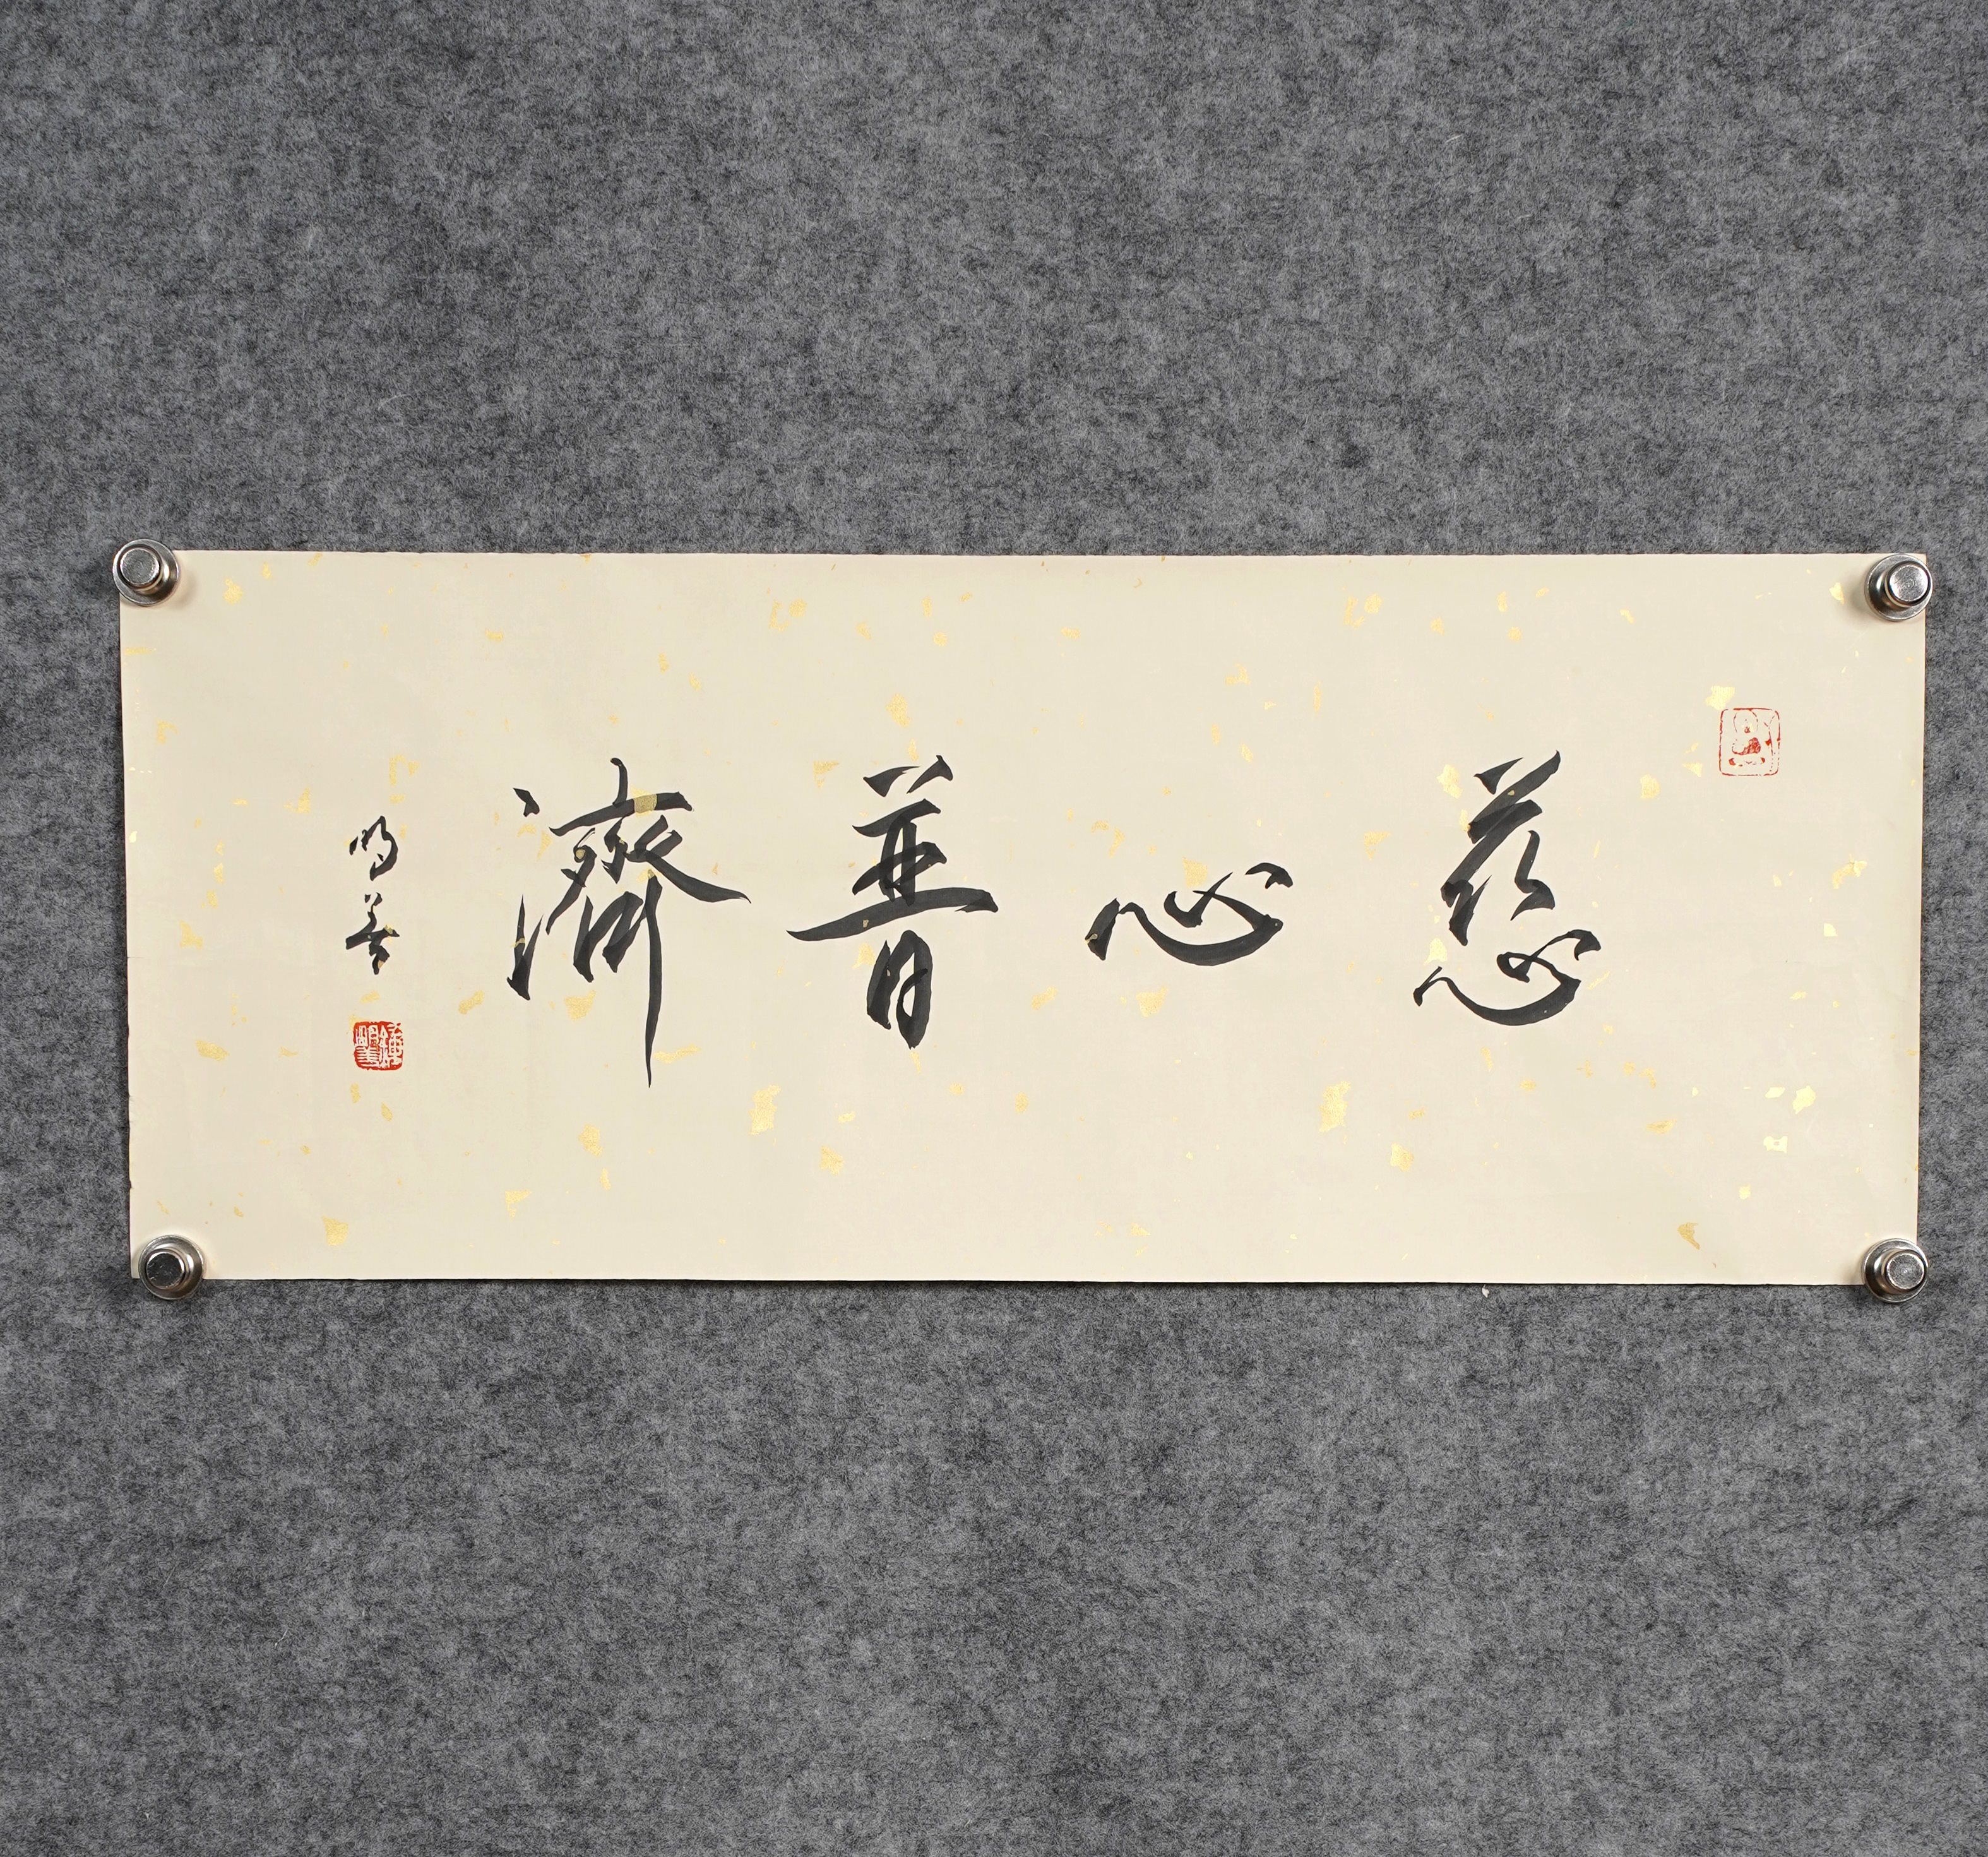 慈心普濟
明善